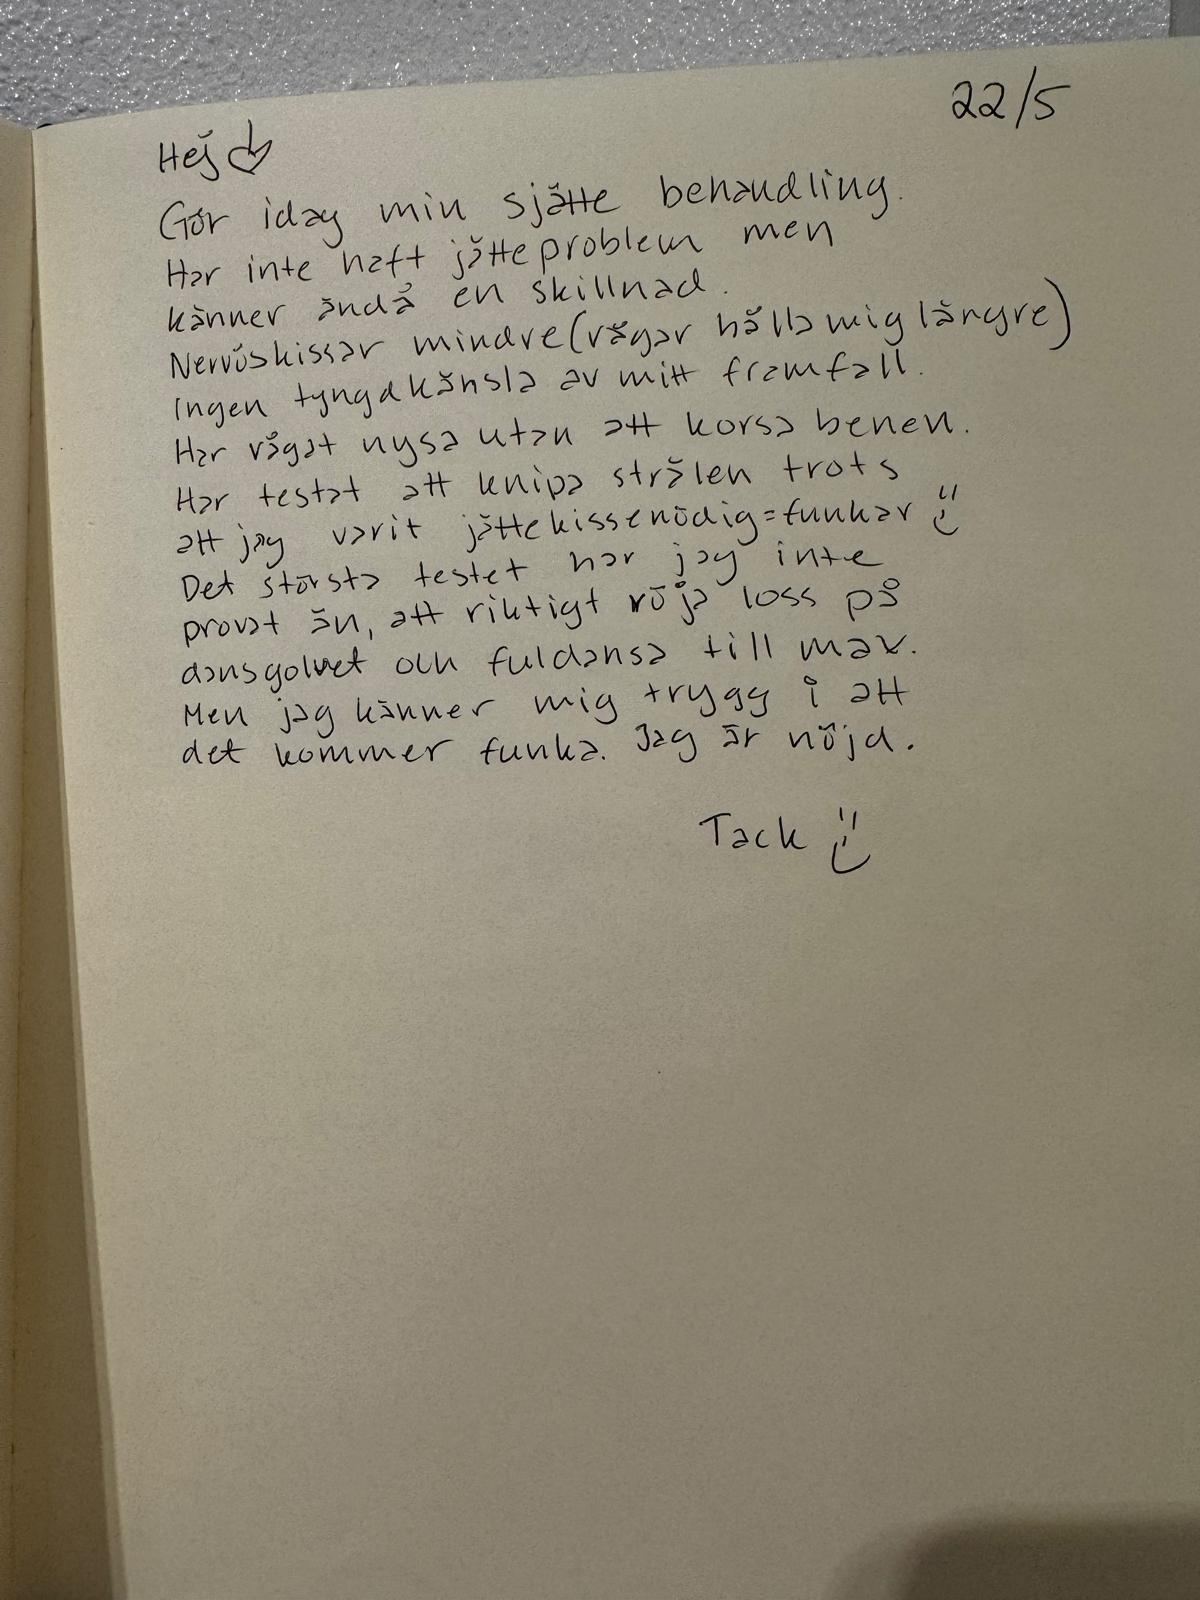 22/5
Hej
Gör idag min sjätte behandling.
Har inte haft jätteproblem men
känner ändå en skillnad.
Nervöskissar mindre (vågar hålla mig längre)
Ingen tyngdkänsla av mitt framfall.
Har vågat nysa utan att korsa benen.
Har testat att knipa strålen trots
att jag varit jättekissenödig = funkar
Det största testet har jag inte
provat än, att riktigt röja loss på
dansgolvet och fuldansa till max.
Men jag känner mig trygg i att
det kommer funka. Jag är nöjd.
Tack